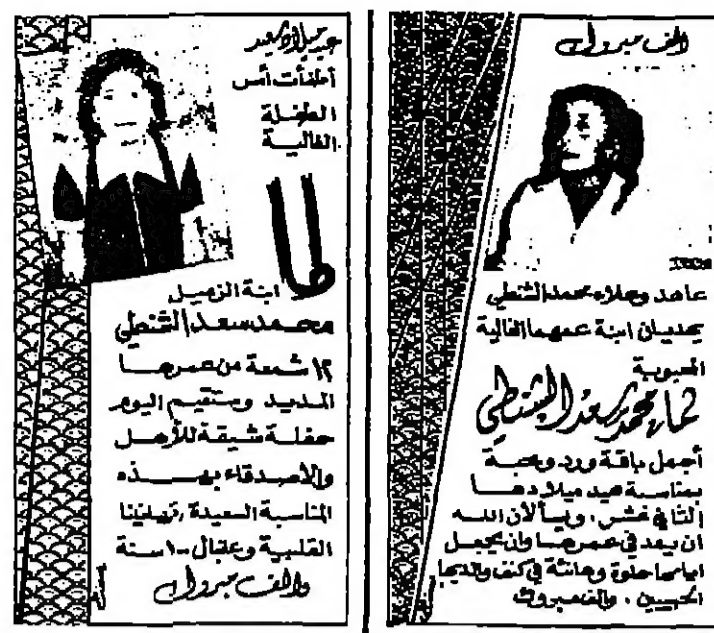 الف مبروك
عاهد وعلاء محمد الشنطي
يهديان ابنة عمهما الغالية
المحبوبة
محمد سعد الشنطي
أجمل باقة ورد ومحبة
بمناسبة عيد ميلادها
الثاني عشر، ويسألان الله
ان يمد في عمرها وان يجعل
ايامها حلوة وهانئة في كنف والديها
الحبيبين، والف مبروك
عيد ميلاد سعيد
أطفأت أمس
الطفلة
الغالية
لما
ابنة الزميل
محمد سعد الشنطي
١٢ شمعة من عمرها
المديد وستقيم اليوم
حفلة شيقة للأهل
والأصدقاء بهذه
المناسبة السعيدة، تهانينا
القلبية وعقبال ١٠٠ سنة
والف مبروك